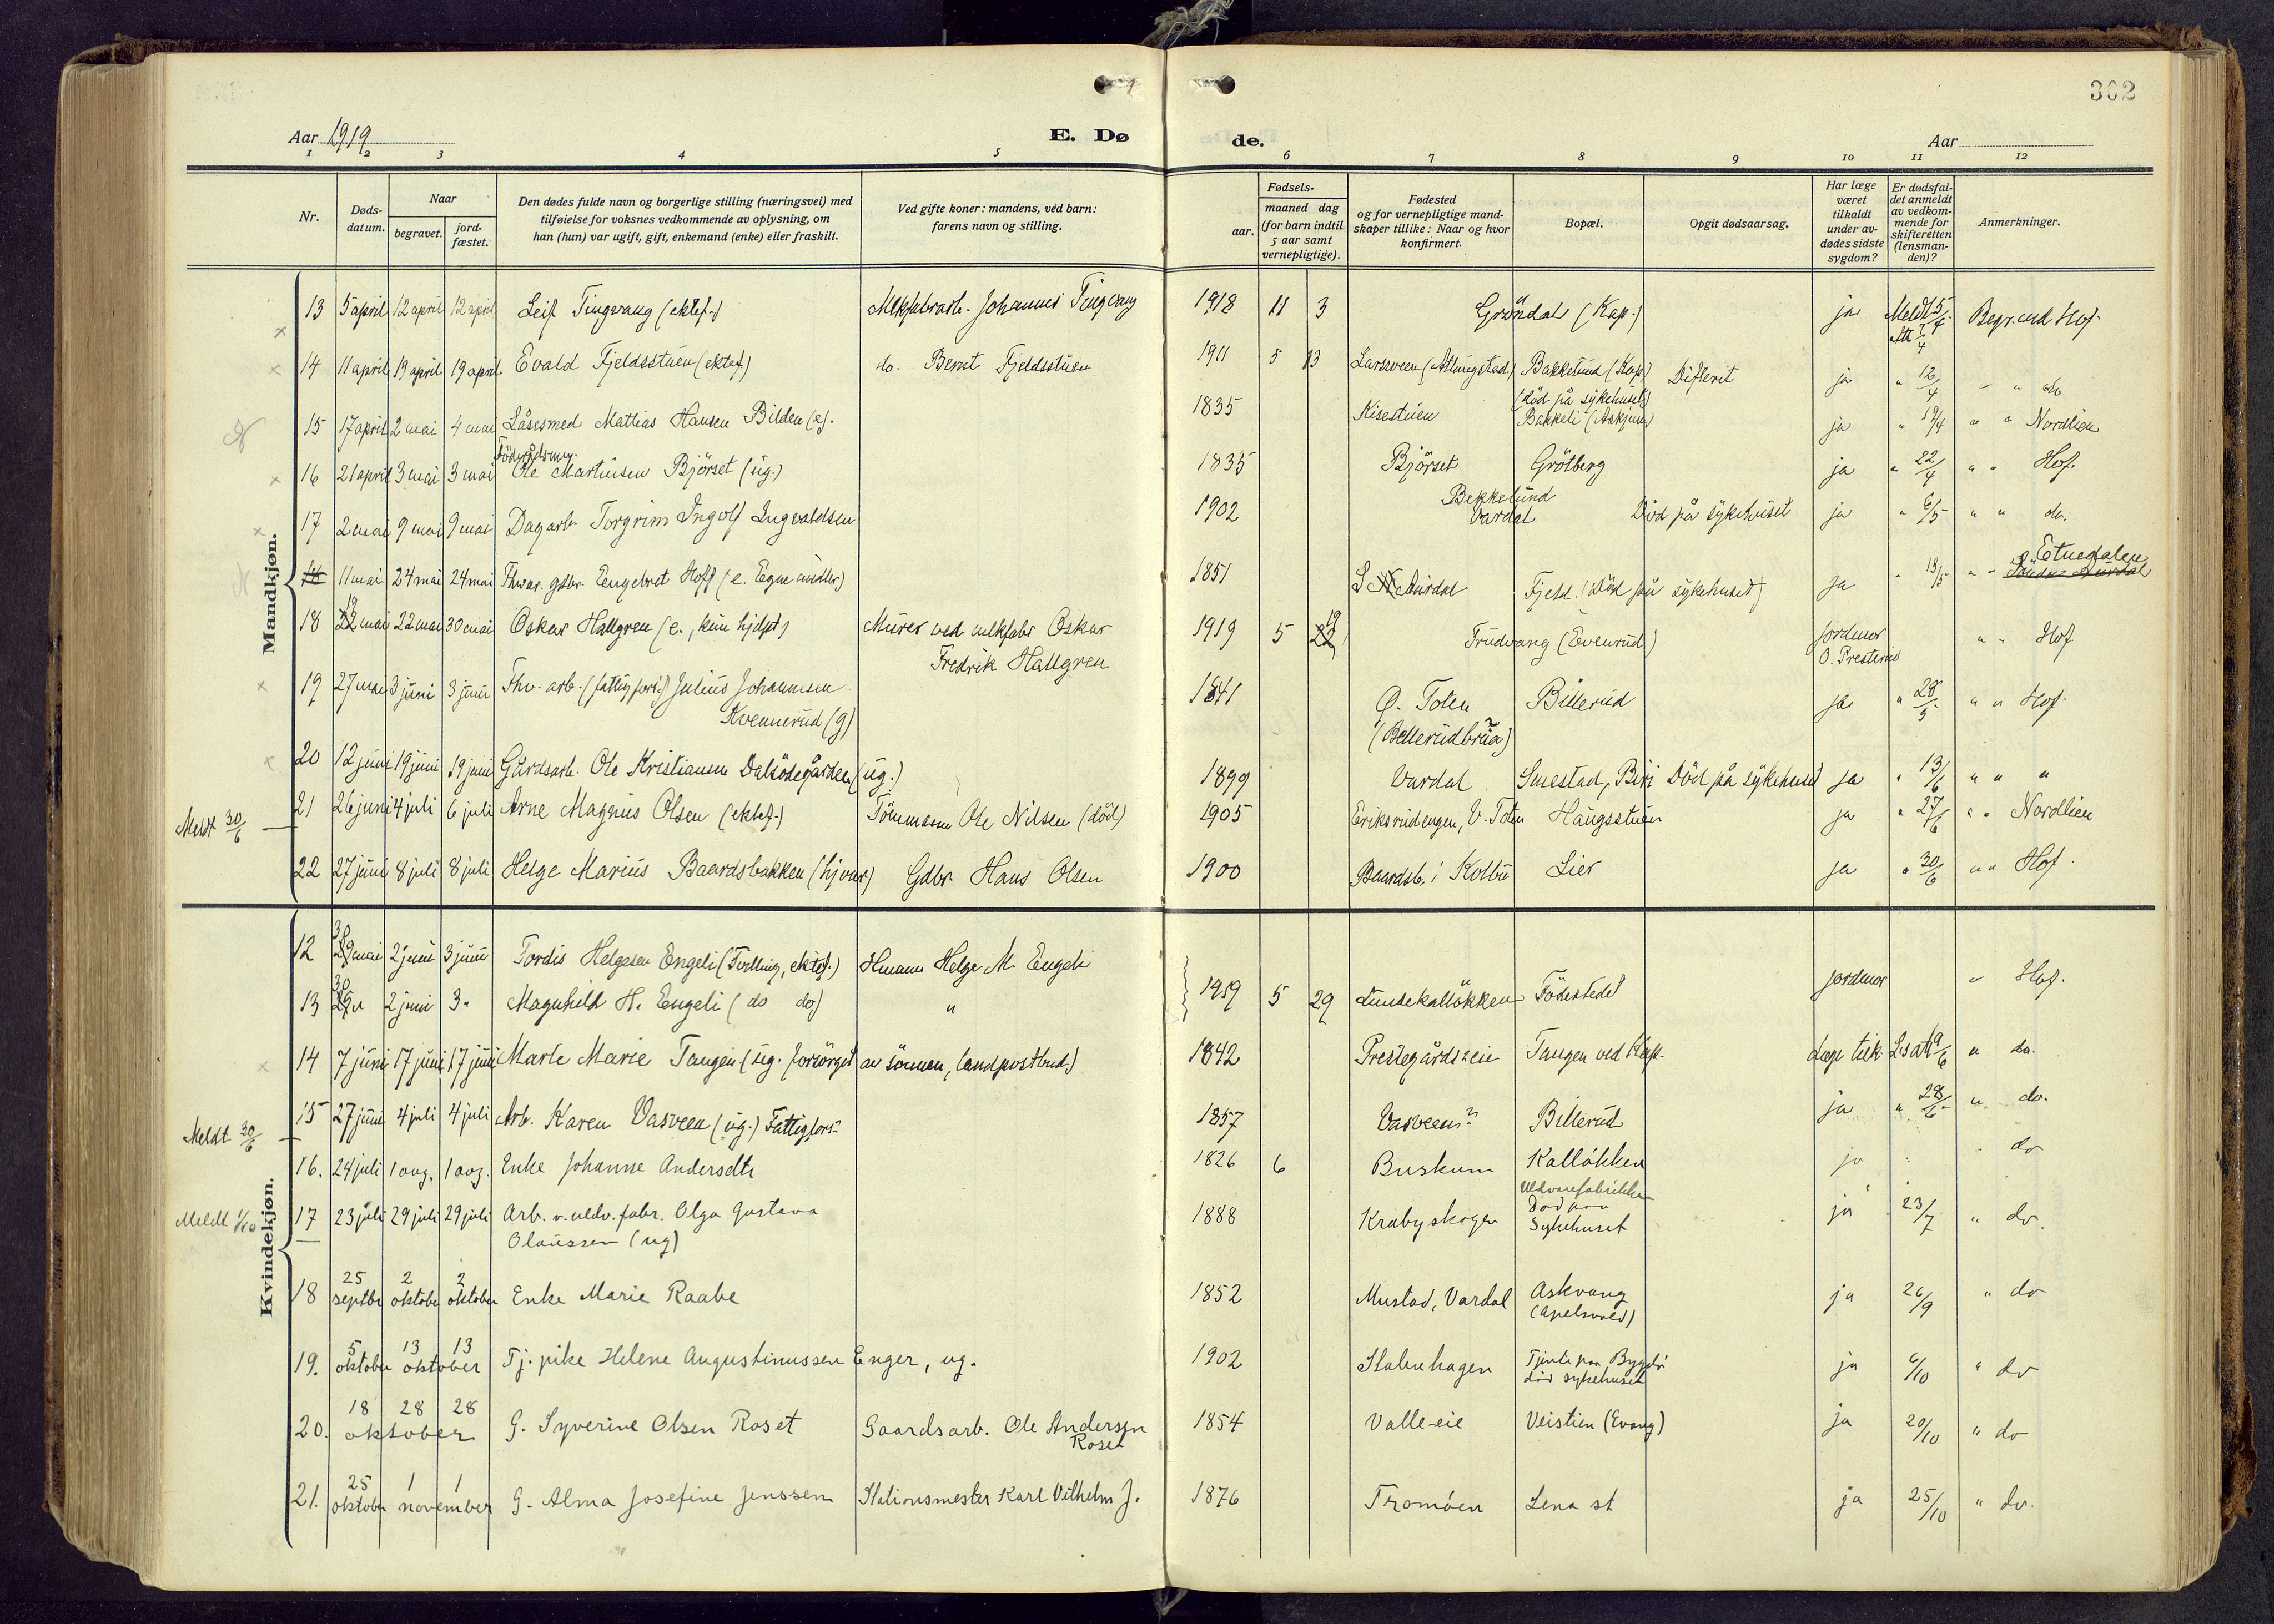 302
Aar 1919 E. Dø de. Aar
1 2 3 4 5 6 7 8 9 10 11 12
Nr. Døds-datum. Naar begravet. jord-fæstet. Den dødes fulde navn og borgerlige stilling (næringsvei) med tilføielse for voksnes vedkommende av oplysning, om han (hun) var ugift, gift, enkemand (enke) eller fraskilt. Ved gifte koner: mandens, ved barn: farens navn og stilling. Fødsels- aar. maaned dag (for barn indtil 5 aar samt vernepligtige). Fødested og for vernepligtige mandskaper tillike: Naar og hvor konfirmert. Bopæl. Opgit dødsaarsag. Har læge været tilkaldt under avdødes sidste sygdom? Er dødsfaldet anmeldt av vedkommende for skifteretten (lensmanden)? Anmerkninger.
Mandkjøn.
13 5 april 12 april 12 april Leif Tingvang (ektef.) Johannes Tingvang 1918 11 3 Gröndal (Kap.) ja Meldt 5/4 Begr. ved Hof.
14 11 april 19 april 19 april Evald Fjeldsstuen (ektef) do. Bernt Fjeldsstuen 1911 5 13 Larsveen Bakkelund (Kap) Difterit ja " 12/4 " " do
(död på sykehuset)
15 17 april 2 mai 4 mai Låsesmed Mathias Hansen Bilden (e). 1835 Kisestuen Bakkeli ja " 19/4 " " Nordlien
16 21 april 3 mai 3 mai Ole Martinsen Björset (ug.) 1835 Björset Grötberg ja " 22/4 " " Hof.
17 2 mai 9 mai 9 mai Dagarb. Torgrim Ingolf Ingvaldsen 1902 Bekkelund Vardal Död på sykehuset ja " 6/5 " " do.
11 mai 24 mai 24 mai Engebret Hoff 1851 S. Aurdal Fjeld. (Död på sykehuset) ja " 13/5 " " Etnedalen
18 19 22 mai 22 mai 30 mai Oskar Hallgren (e., kun hjdpt) Murer ved Oskar
Fredrik Hallgren 1919 5 19 22 Trudvang (Evenrud) Jordmor " " Hof
19 27 mai 3 juni 3 juni Fhv. arb. (fattigfors.) Julius Johannesen
Kvennerud (g) 1841 Ø. Toten Billerud ja " 28/5 " " Hof
(Bellerudbrua)
20 12 juni 19 juni 19 juni Gårdsarb. Ole Kristiansen Dalsödegården (ug.) 1899 Vardal Smestad, Biri Död på sykehuset ja " 13/6 " " "
Meldt 30/6 21 26 juni 4 juli 6 juli Arne Magnus Olsen (ektef.) Tömmerm Ole Nilsen (död) 1905 Eriksrudengen, V. Toten Haugsstuen ja " 27/6 " " Nordlien
22 27 juni 8 juli 8 juli Helge Marius Baardsbakken Gdbr Hans Olsen 1900 Baardsb. i Kolbu Lier ja " 30/6 " " Hof.
Kvindekjøn.
12 30 29 mai 2 juni 3 juni Tordis Helgesen Engeli (Tvilling, ektef.) Hmann Helge M. Engeli
13 30 29 " 2 juni 3 " Magnhild H. Engeli (do do) " 1919 5 29 Lundekallökken Födestedet jordmor " Hof.
14 7 juni 17 juni 17 juni Marte Marie Tangen (ug. forsörget av sönnen, landpostbud) 1842 Prestegårdseie Tangen ved Kap. Læge tilk. 9/6 " do.
Meldt 30/6 15 27 juni 4 juli 4 juli Arb. Karen Vasveen (ug.) Fattigfors. 1857 Vasveen? Billerud ja " 28/6 " do.
16. 24 juli 1 aug. 1 aug. Enke Johanne Andersdtr 1826 6 Buskum Kallökken ja " do
Meldt 1/10 17 23 juli 29 juli 29 juli Arb. v. uldv. fabr. Olga Gustava
Olaussen (ug) 1888 Krabyskogen Uldvarefabrikken Död paa Sykehuset ja 23/7 " do.
18 25 septbr 2 oktober 2 oktober Enke Marie Raabe 1852 Mustad, Vardal Askvang (Apelsvold) ja 26/9 " do
19. 5 oktober 13 13 oktober Tj. pike Helene Augustinussen Enger, ug. 1902 Stabuhagen Tjente paa Bygdö död sykehuset ja 6/10 " do
20. 18 28 28 oktober G. Syverine Olsen Roset Gaardsarb. Ole Andersen
Roset 1854 Valle-eie Veistien (Evang) ja 20/10 " do
21. 25 oktober 1 1 november G. Alma Josefine Jenssen Stationsmester Karl Vilhelm J. 1876 Tromöen Lena st ja 25/10 " do.